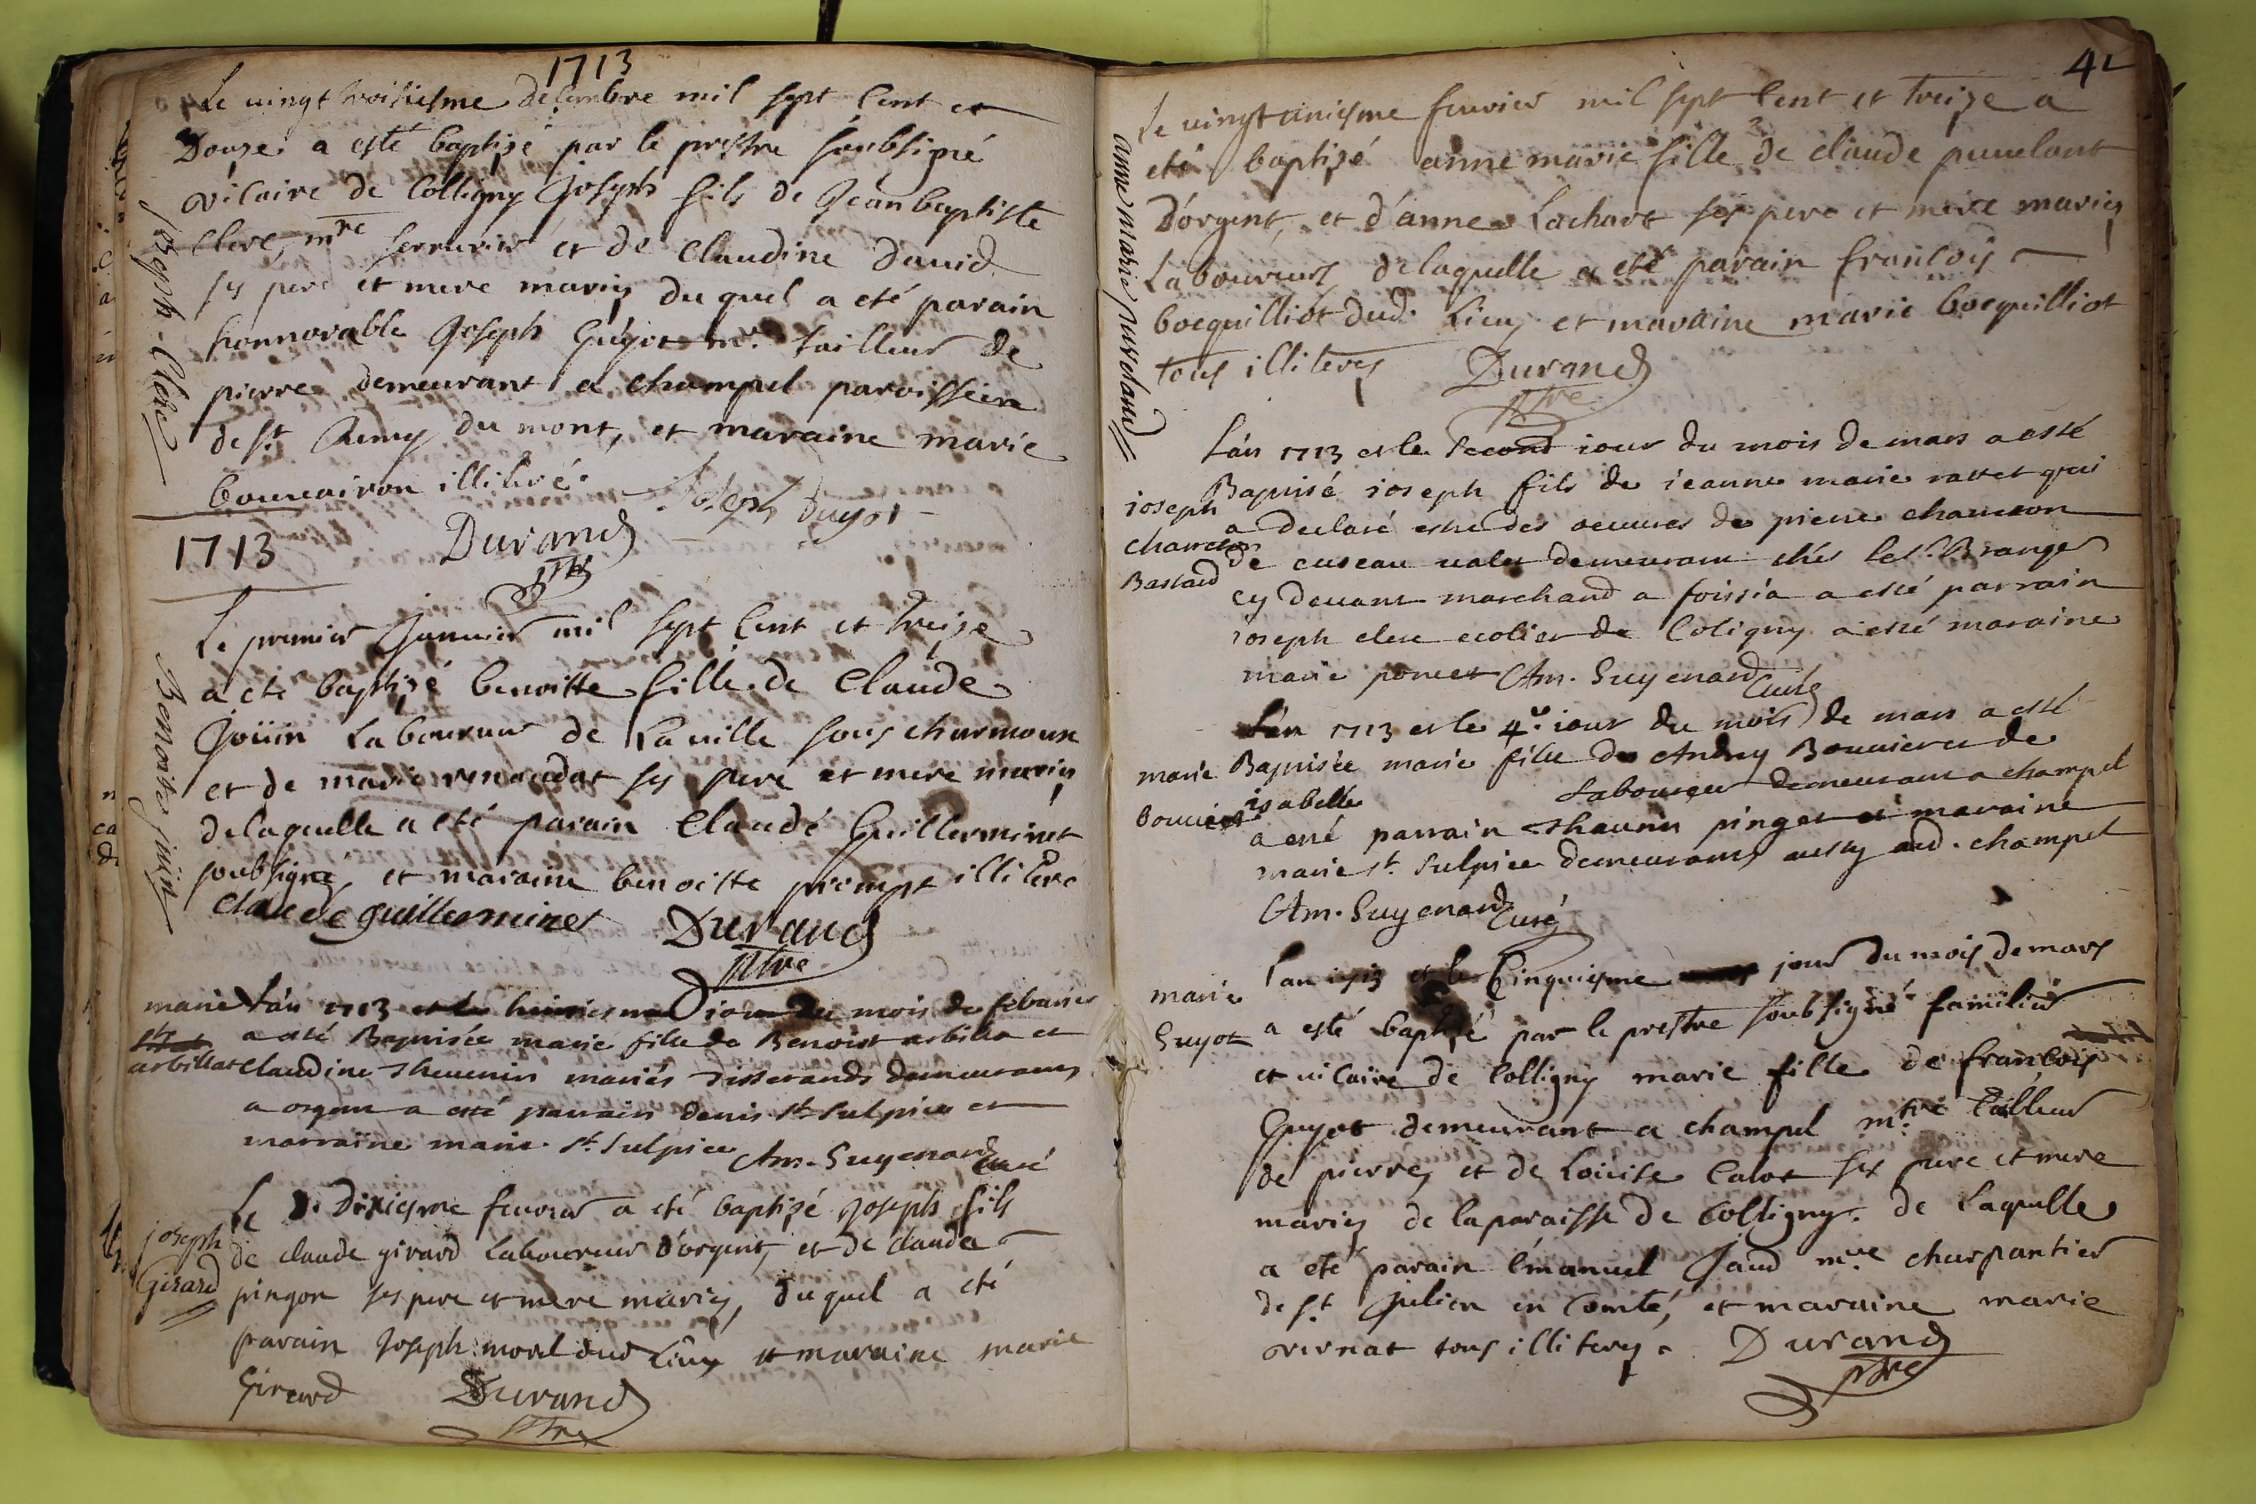 1713
Le vingt troisiesme decembre mil sept cent et
Douze a esté baptizé par le prestre soubsigné
vicaire de Colligny Joseph fils de Jean baptiste
Clerc, mre serrurier et de Claudine David
ses pere et mere mariez du quel a eté parain
honnorable Joseph Guyot mre. tailleur de
pierre demeurant a champel paroissien
de st. Remy du mont, et maraine marie
illiteré.
Joseph Guyot
Durand
ptre
Joseph Clerc
1713
Le premier Janvier mil sept Cent et treize
a eté baptizé benoitte fille de Claude
Joüin Laboureur de La ville sous charmoux
et de marie renoudat ses pere et mere mariez
de laquelle a eté parain Claude Guillerminet
soubsigné, et maraine benoitte prompt illiteré
claude guillerminet
Durand
ptre
Benoite juin
marie
arbillat
L'an 1713 et le huitiesme iour du mois de febvrier
a esté Baptisée marie fille de Benoist arbillat et
claudine thevenin mariés tisserands demeurants
a orgent a esté parrain denis st. sulpice et
marraine marie st. sulpice Am. Guyenard Curé
joseph
Girard
Le dixiesme fevrier a eté baptizé Joseph fils
de claude girard Laboureur d'orgent, et de claude
pingon ses pere et mere mariez, du quel a eté
parain Joseph morel dud Lieu et maraine marie
Girard Durand
ptre
Le vingt uniesme fevrier mil sept Cent et treize a
eté baptizé anne marie fille de claude
D'orgent, et d'anne Lachart ses pere et mere mariez
Laboureurs, de laquelle a eté parain francois
bocquilliot dud. Lieu, et maraine marie bocquilliot
tous illiterez Durand
ptre
anne marie
L'an 1713 et le second iour du mois de mars a esté
Baptisé ioseph fils de ieanne marie rattet qui
a declaré estre des oeuvres de pierre chamron
de cuseau valet demeurant chés le sr. Branges
cy devant marchand a foissia a esté parrain
ioseph clerc ecolier de Coligny a esté maraine
marie poncet Am. Guyenard Curé
ioseph
Bastard
L'an 1713 et le 4e. iour du mois de mars a esté
Baptisée marie fille de Andrey Bouvier et de
isabelle
Laboureur demeurant a champel
a esté parrain thevenin pinget et maraine
marie st. sulpice demeurants aussy aud. champel
Am. Guyenard Curé
marie
Bouvier
L'an 1713 et le Cinquiesme jour du mois de mars
a esté baptizé par le prestre soubsigné familier
et vicaire de Colligny marie fille de francois
Guyot demeurant a champel mtre tailleur
de pierre, et de Loüise Calot ses pere et mere
mariez de la paroisse de Colligny. de Laquelle
a eté parain Émanuel Jaud mre charpantier
de st. Julien en Comté, et maraine marie
vernat tous illiterez. Durand
ptre
marie
Guyot